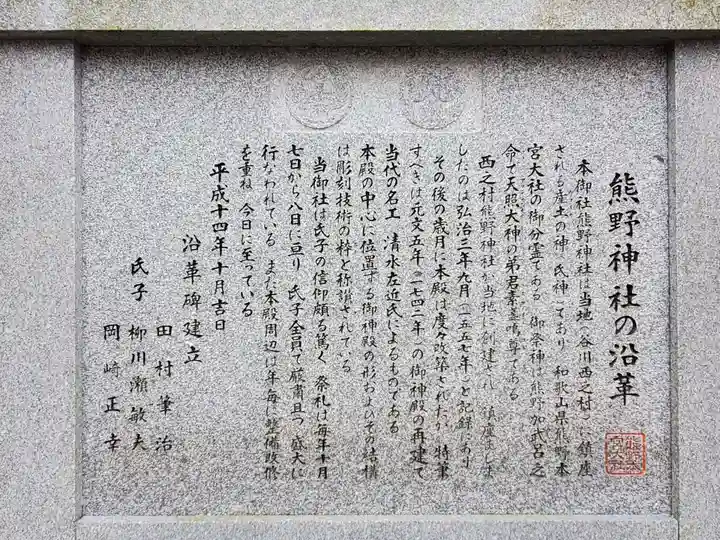 熊野神社の沿革
本御社熊野神社は当地(谷川西之村)に鎮座
される産土の神(氏神)であり 和歌山県熊野本
宮大社の御分霊である 御祭神は熊野加武呂之
命で天照大神の弟君素盞嗚尊である
西之村熊野神社が当地に創建され 鎮座しま
したのは弘治三年九月(一五五七年)と記録にあり
その後の歳月に本殿は度々改築されたが 特筆
すべきは元文五年(一七四二年)の御神殿の再建で
当代の名工 清水左近氏によるものである
本殿の中心に位置する御神殿の形およびその結構
は彫刻技術の粋と称讃されている
当御社は氏子の信仰頗る篤く 祭礼は毎年十月
七日から八日に亘り 氏子全員で厳粛且つ 盛大に
行なわれている また本殿周辺は年毎に整備改修
を重ね 今日に至っている
平成十四年十月吉日
沿革碑建立
田村筆治
氏子 柳川瀬敏夫
岡崎正幸
熊野本
宮大社